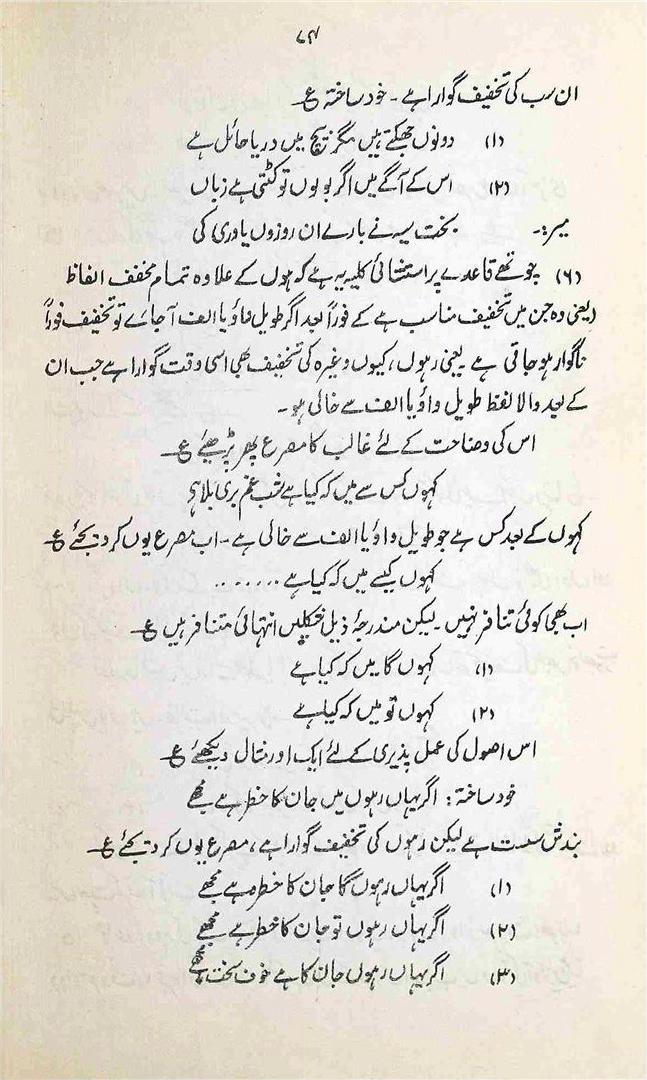 ۷۴
ان سب کی تخفیف گوارا ہے ۔ خود ساختہ ع
(۱) دونوں جھکتے ہیں مگر بیچ میں دریا حائل ہے
(۲) اس کے آگے میں اگر بولوں تو کٹتی ہے زباں
میر:۔ بخت سیہ نے بارے ان روزوں یاوری کی
(۶) چوتھے قاعدے پر استثنائی کلیہ یہ ہے کہ ہوں کے علاوہ تمام مخفف الفاظ
(یعنی وہ جن میں تخفیف مناسب ہے کے فوراً بعد اگر طویل واؤ یا الف آ جائے تو تخفیف فوراً
ناگوار ہو جاتی ہے یعنی رہوں ، کیوں وغیرہ کی تخفیف بھی اسی وقت گوارا ہے جب ان
کے بعد والا لفظ طویل واؤ یا الف سے خالی ہو ۔
اس کی وضاحت کے لئے غالب کا مصرع پھر پڑھیئے ع
کہوں کس سے میں کہ کیا ہے شب غم بری بلا ہے
کہوں کے بعد کس ہے جو طویل واؤ یا الف سے خالی ہے ۔ اب مصرع یوں کر دیجئے ع
کہوں کیسے میں کہ کیا ہے .......
اب بھی کوئی تنافر نہیں ۔ لیکن مندرجۂ ذیل شکلیں انتہائی متنافر ہیں ع
(۱) کہوں گا میں کہ کیا ہے
(۲) کہوں تو میں کہ کیا ہے
اس اصول کی عمل پذیری کے لئے ایک اور مثال دیکھئے ع
خود ساختہ : اگر یہاں رہوں میں جان کا خطر ہے مجھے
بندش سست ہے لیکن رہوں کی تخفیف گوارا ہے ، مصرع یوں کر دیجئے ع
(۱) اگر یہاں رہوں گا جان کا خطر ہے مجھے
(۲) اگر یہاں رہوں تو جان کا خطر ہے مجھے
(۳) اگر یہاں رہوں جان کا ہے خوف سخت مجھے